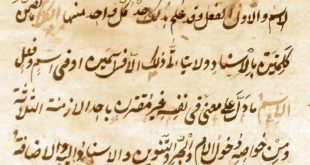 الاسم والاول الفعل وقد علم بذلك حد كل واحد منها الكلام ما تضمن
كلمتين بالاسناد ولا يتأتى ذلك الا في اسمين او في اسم وفعل
الاسم ما دل على معنى في نفسه غير مقترن باحد الازمنة الثلاثة
ومن خواصه دخول اللام والجر والتنوين والاسناد اليه والاضافة